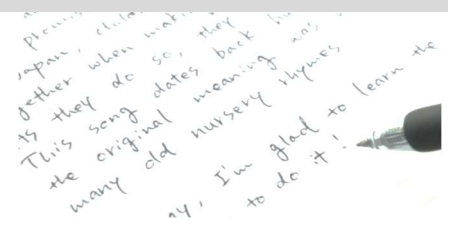 promi
apan, child
gether when maki
as they do so, they
This song dates back hu
the original meaning was
many old nursery rhymes
ay, I'm glad to learn the
to do it!